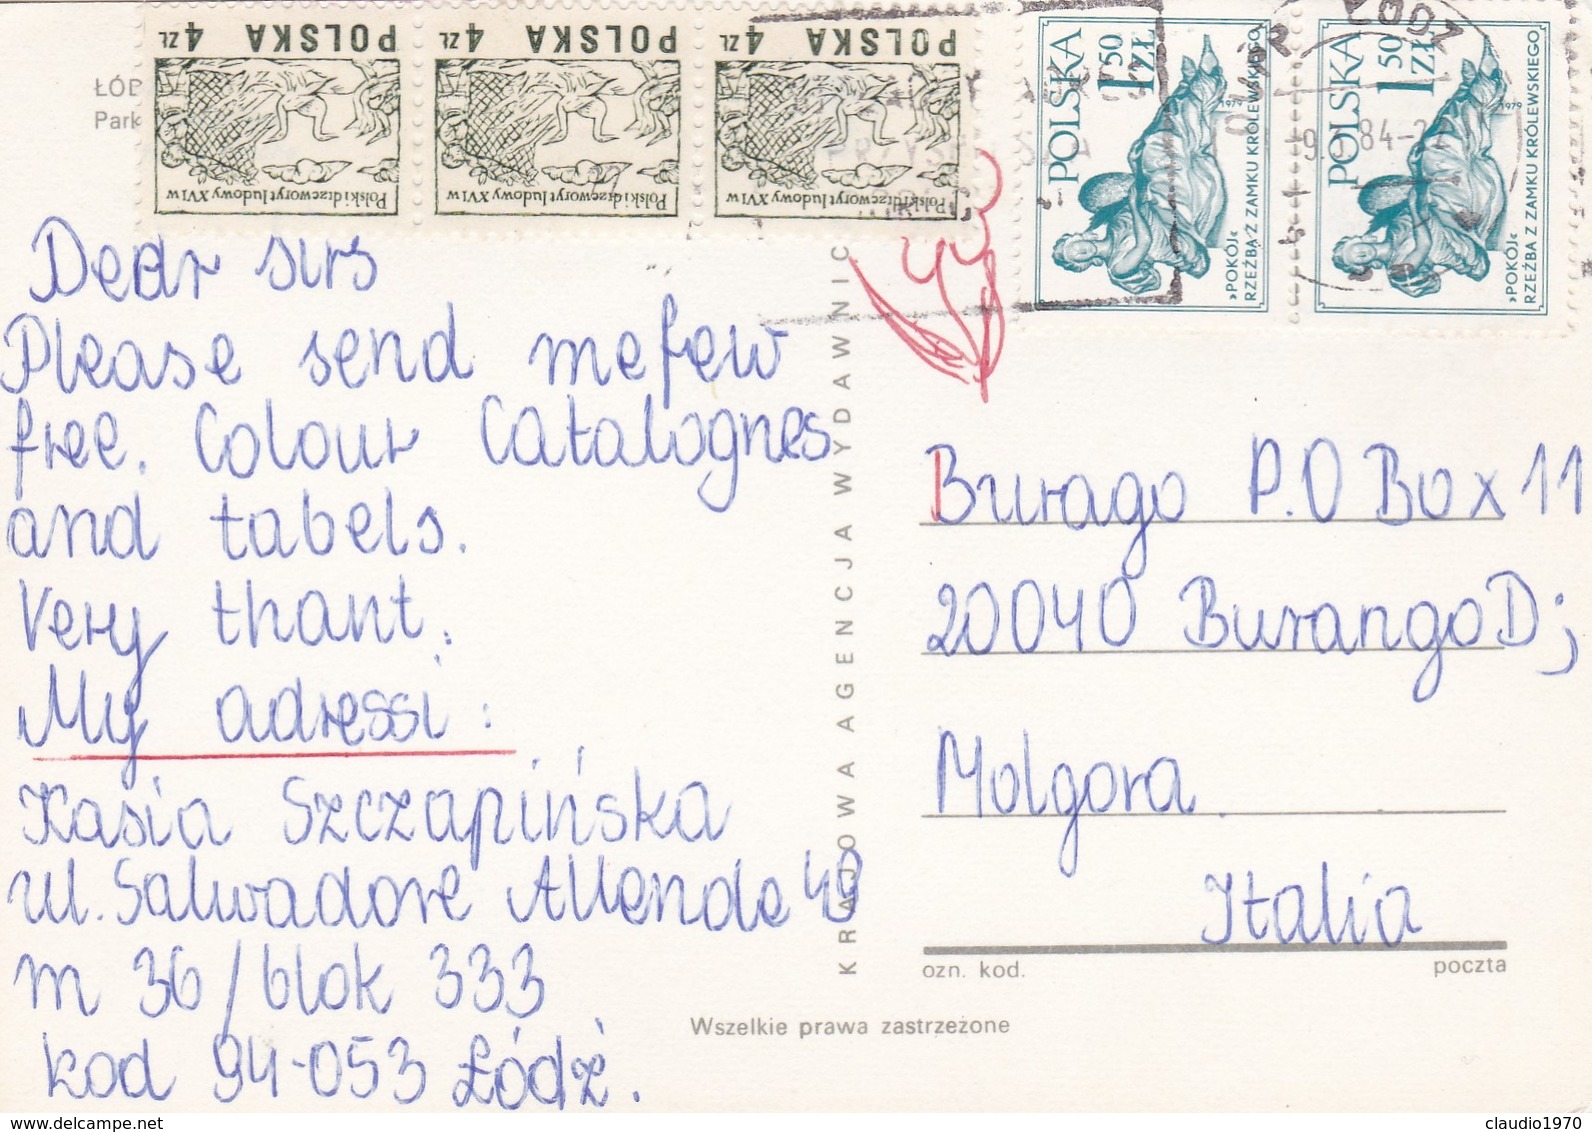 POLSKA 4 ZŁ
Polski drzeworyt ludowy XVI w
POLSKA 4 ZŁ
Polski drzeworyt ludowy XVI w
POLSKA 4 ZŁ
Polski drzeworyt ludowy XVI w
POLSKA
1 50 ZŁ
1979
»POKÓJ«
RZEŹBA Z ZAMKU KRÓLEWSKIEGO
POLSKA
1 50 ZŁ
1979
»POKÓJ«
RZEŹBA Z ZAMKU KRÓLEWSKIEGO
ŁÓD
Park
Dear sirs
Please send me few
free. Colour Catalognes
and tabels.
Very thant.
My adressi:
Kasia Szczapińska
ul. Salwadore Allende 49
m 36/blok 333
kod 94-053 Łódź.
KRAJOWA AGENCJA WYDAWNIC
Burago P.O Box 11
20040 Burango D;
Molgora.
Italia
ozn. kod. poczta
Wszelkie prawa zastrzeżone
www.delcampe.net claudio1970